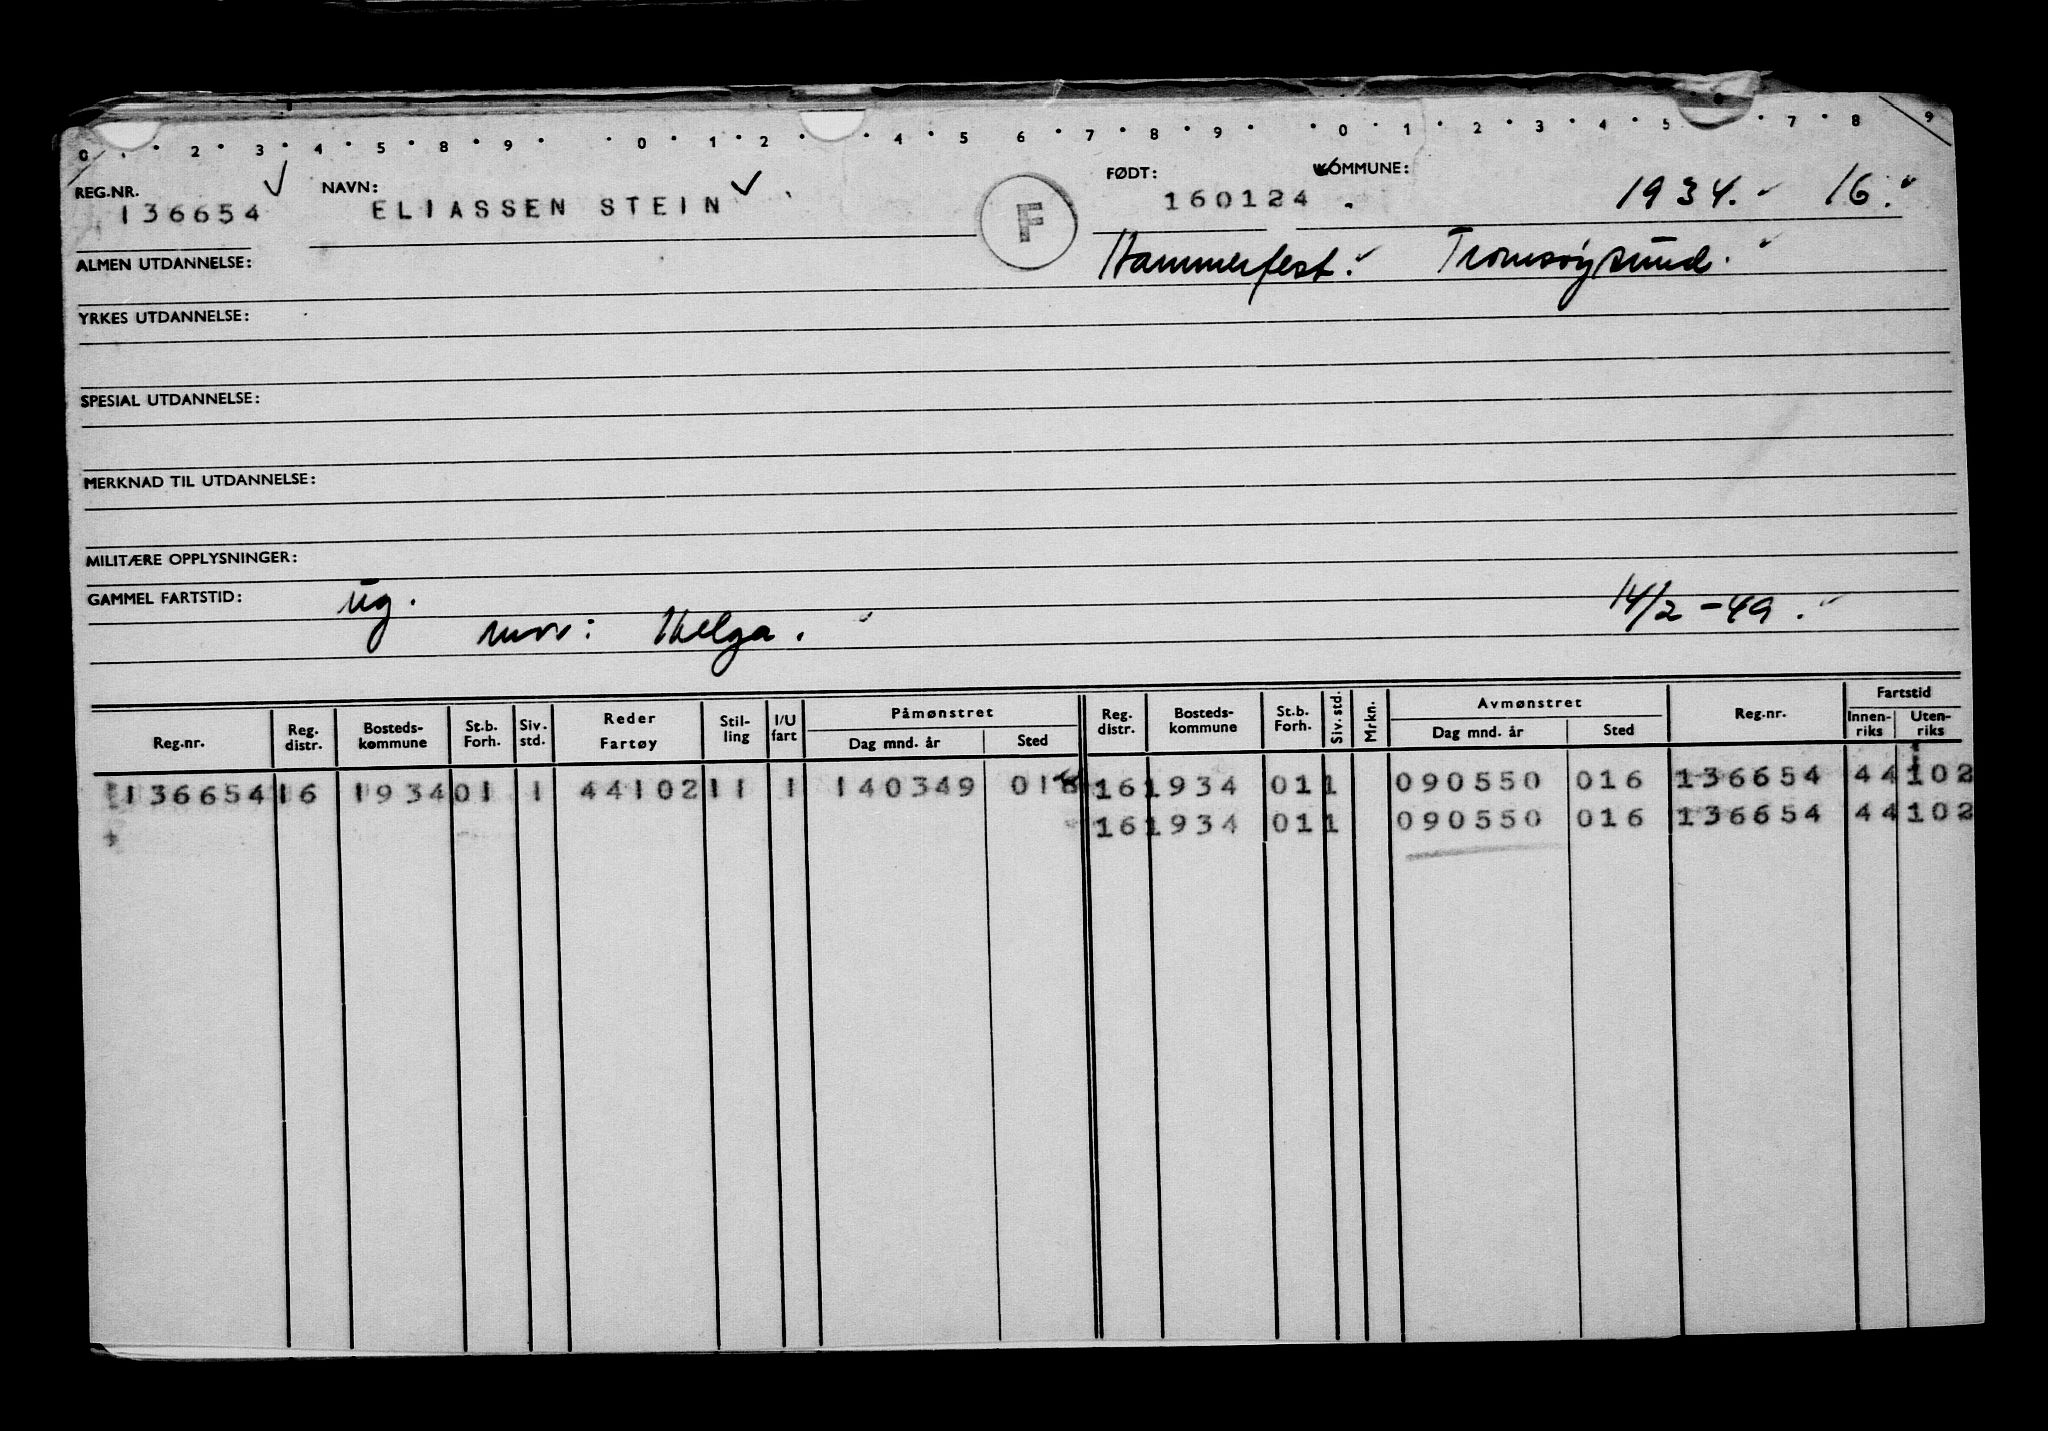 0 2 3 4 5 8 9 0 1 2 4 5 6 7 8 9 0 1 2 3 4 5 7 8 9
REG.NR. NAVN: FØDT: KOMMUNE:
136654 ELIASSEN STEIN F 160124 1934. 16.
ALMEN UTDANNELSE: Hammerfest. Tromsøysund.
YRKES UTDANNELSE:
SPESIAL UTDANNELSE:
MERKNAD TIL UTDANNELSE:
MILITÆRE OPPLYSNINGER:
GAMMEL FARTSTID: ug. 14/2-49.
mor: Helga.
Reg.nr. Reg. distr. Bosteds-kommune St.b. Forh. Siv. std. Reder Fartøy Stil-ling I/U fart Påmønstret Dag mnd. år Sted Reg. distr. Bosteds-kommune St.b. Forh. Siv. std. Mrkn. Avmønstret Dag mnd. år Sted Reg.nr. Fartstid Innen-riks Uten-riks
136654 16 1934 01 1 44102 11 1 140349 016 16 1934 01 1 090550 016 136654 44 102
16 1934 01 1 090550 016 136654 44 102